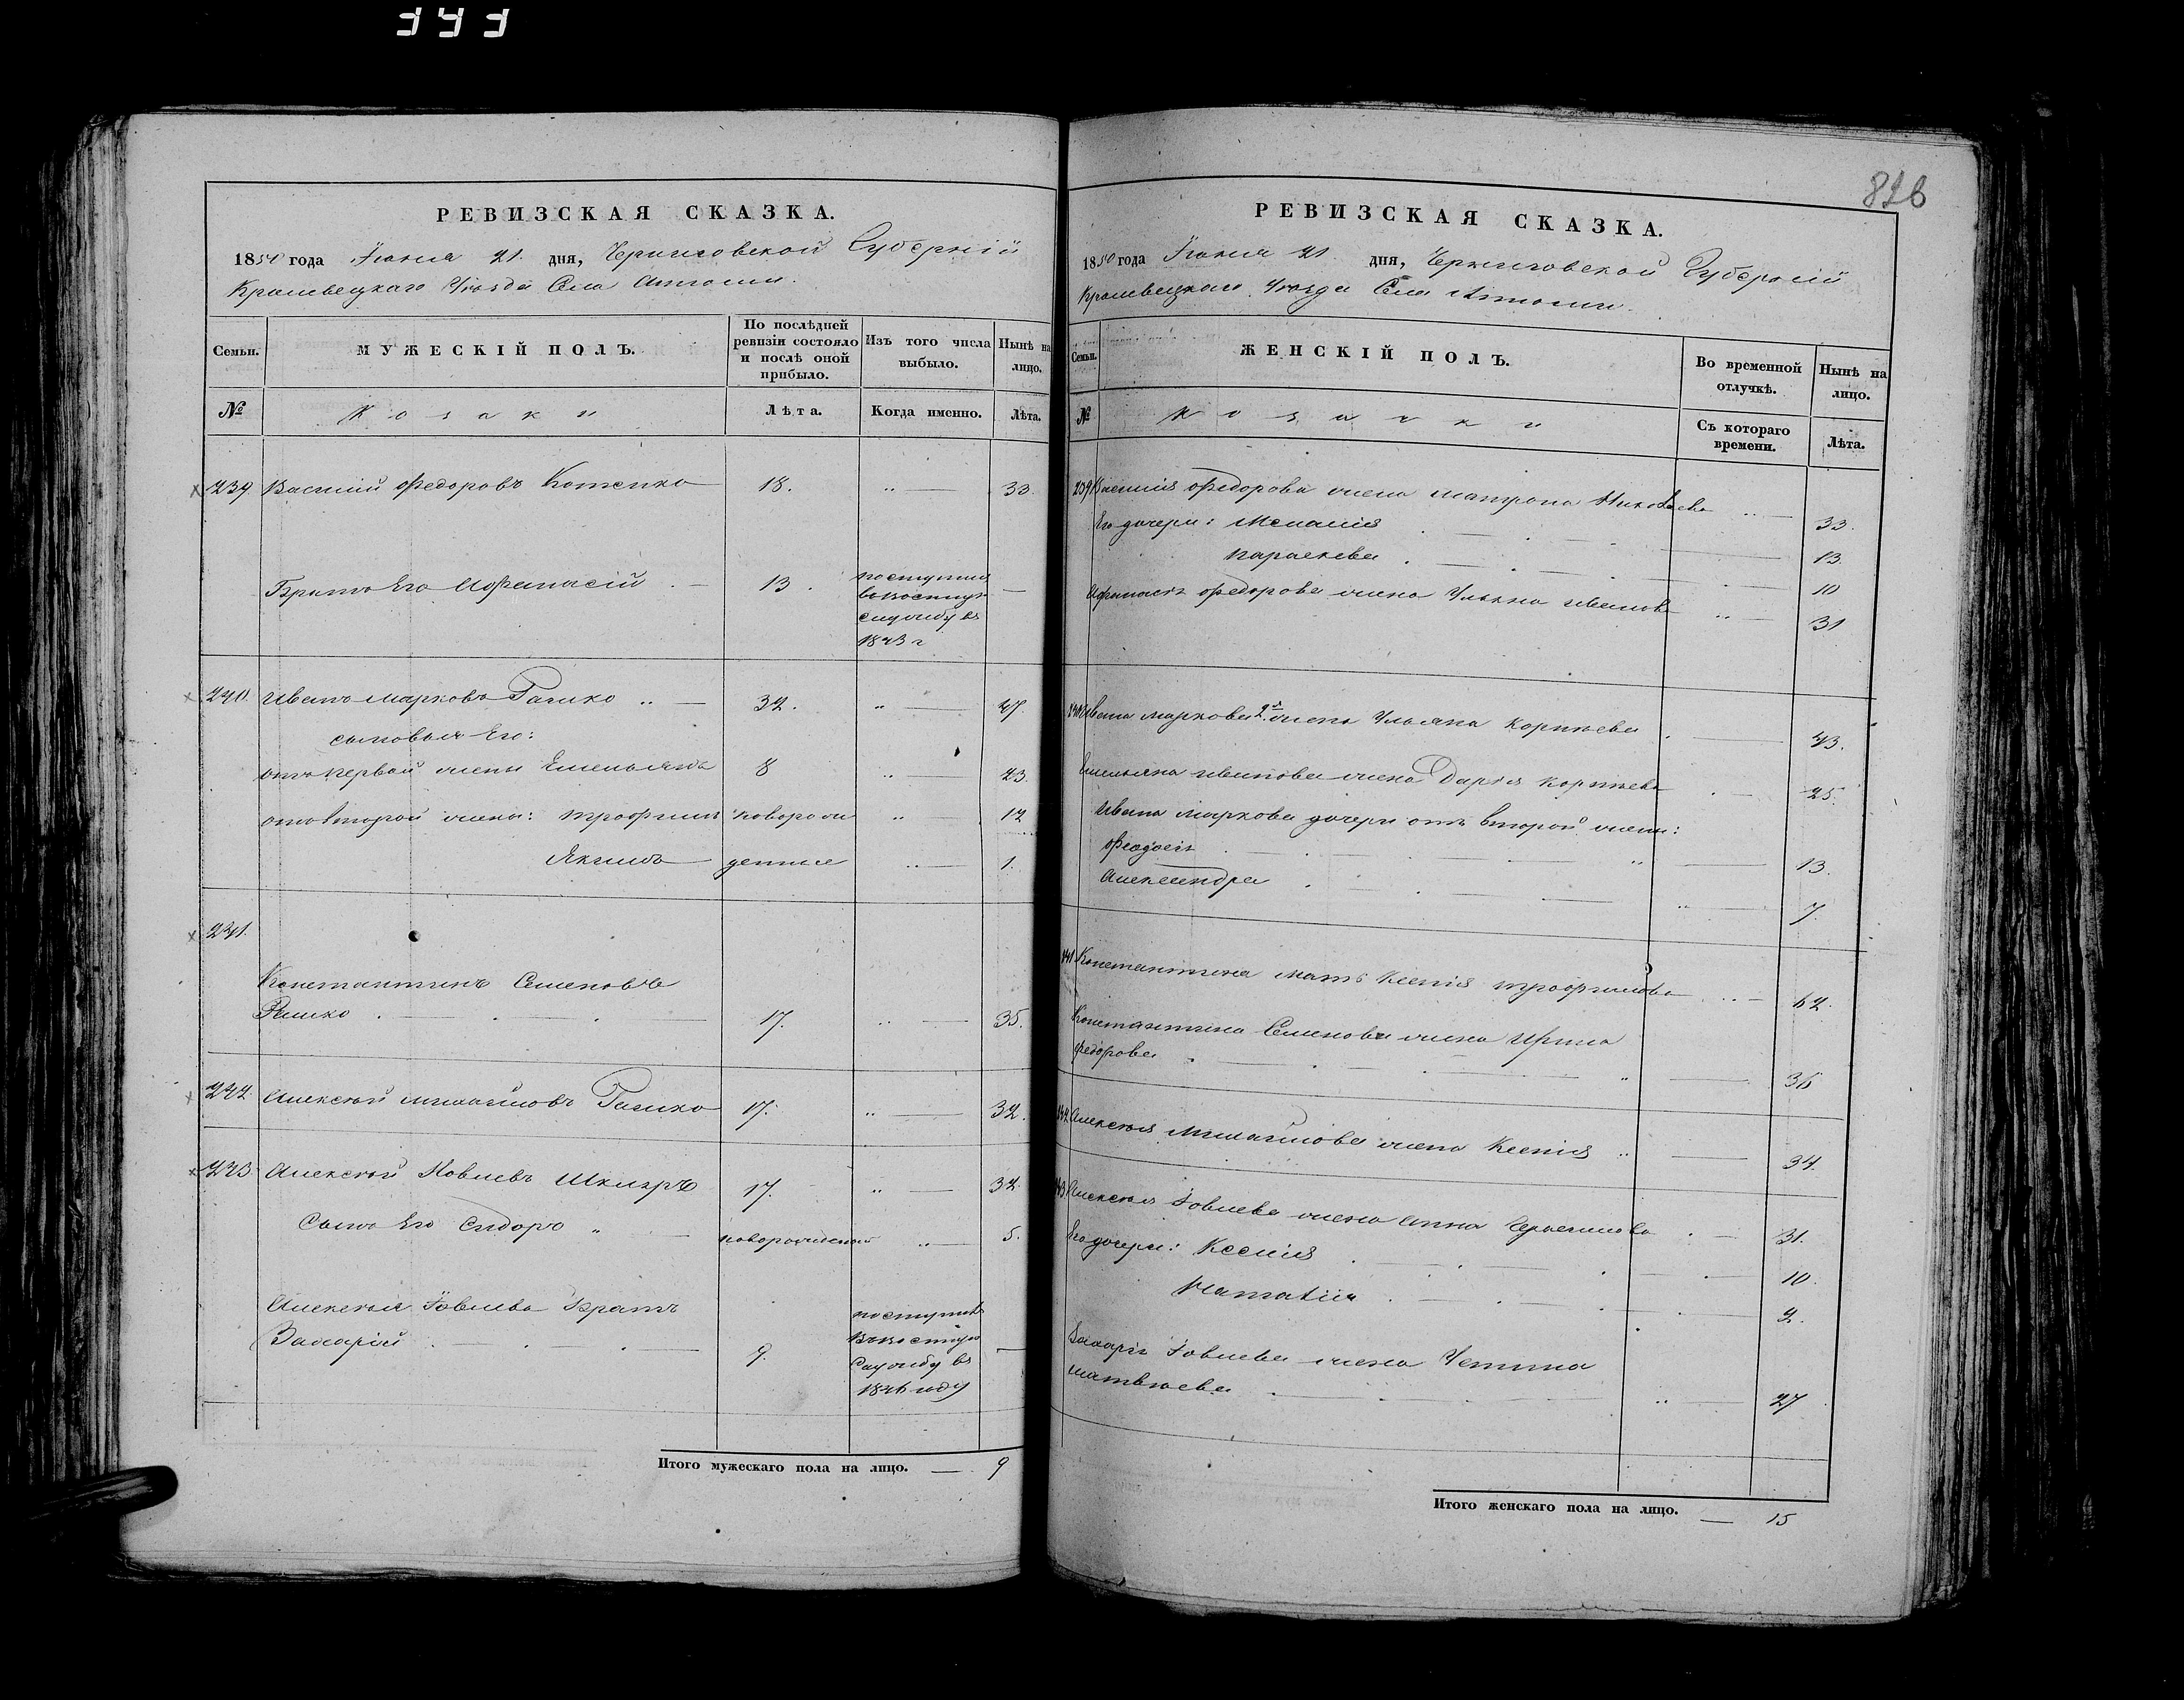 343
826
РЕВИЗСКАЯ СКАЗКА.
1850 года Іюня 21 дня, Черниговской Губерніи
Кролевецкаго Уѣзда Села
Семьи.
МУЖЕСКІЙ ПОЛЪ.
По послѣдней ревизіи состояло и послѣ оной прибыло.
Изъ того числа выбыло.
Нынѣ на лицо.
№
Козаки
Лѣта.
Когда именно.
Лѣта.
239 Василий Федоровъ Котенко 18. 33.
Братъ Его Афанасій 13. поступил
в воскую
службу въ
1843 г
240. Иванъ Марковъ Рашко 32. 47.
сыновья Его:
отъ первой жены Емельянъ 8 23.
отъ второй жены: Трофимъ новорож 12
Якимъ денные 1.
241.
Константинъ Семеновъ
Рашко 17. 35.
242. Алексѣй Михайловъ Рашко 17. 32.
243 Алексѣй Иовлевъ 17. 32.
Сынъ Его Сидоръ новорожденный 5.
Алексѣя Іовлева Братъ поступилъ
Захарій 9. въ воскую
службу въ
1846 году
Итого мужескаго пола на лицо. — 9
РЕВИЗСКАЯ СКАЗКА.
1850 года Іюня 21 дня, Черниговской Губерніи
Кролевецкаго Уѣзда Села
Семьи.
ЖЕНСКІЙ ПОЛЪ.
Во временной отлучкѣ.
Нынѣ на лицо.
№
Козачки
Съ котораго времени.
Лѣта.
239 Василія Федорова жена Матрона 33.
Его дочери: Меланія 13.
Параскева 10
Афанасія Федорова жена Ульяна Иванова 31
240 Ивана Маркова 2я жена Ульяна Корнѣева 43.
Емельяна Иванова жена Дарія Корнѣева 25.
Ивана Маркова дочери отъ второй жены:
Феодосія 13.
Александра 7.
241 Константина мать Ксенія Трофимова 62.
Константина Семенова жена Ирина
Федорова 36
242 Алексѣя Михайлова жена Ксенія 34.
243 Алексѣя Іовлева жена Анна 31.
Его дочери: Ксенія 10.
Наталія 2.
Захарія Іовлева жена Устина
Матвѣева 27
Итого женскаго пола на лицо. — 15